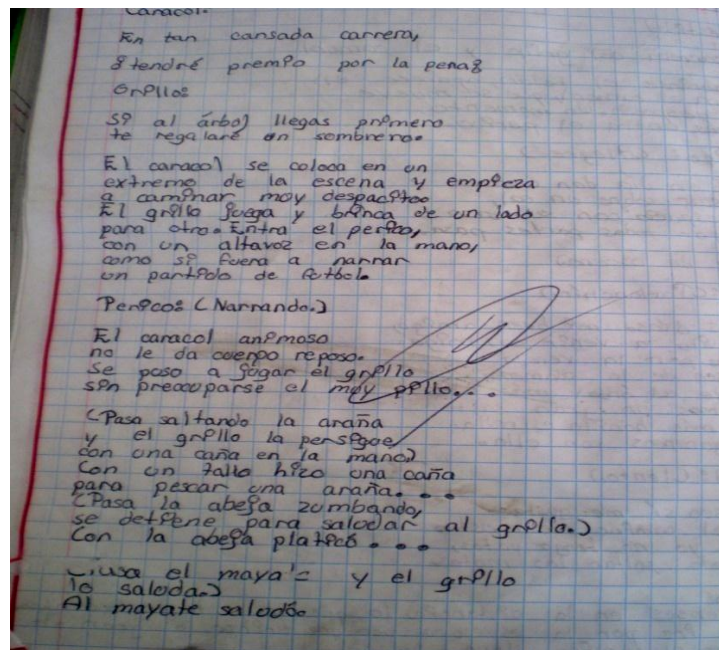 Caracol:
En tan cansada carrera,
¿tendré premio por la pena?
Grillo:
Si al árbol llegas primero
te regalaré un sombrero.
El caracol se coloca en un
extremo de la escena y empieza
a caminar muy despacito.
El grillo juega y brinca de un lado
para otro. Entra el perico,
con un altavoz en la mano,
como si fuera a narrar
un partido de futbol.
Perico: (Narrando.)
El caracol animoso
no le da cuerpo reposo.
Se puso a jugar el grillo
sin preocuparse el muy pillo...
(Pasa saltando la araña
y el grillo la persigue
con una caña en la mano)
Con un tallo hizo una caña
para pescar una araña...
(Pasa la abeja zumbando,
se detiene para saludar al grillo.)
Con la abeja platicó...
el y el grillo
lo saluda.)
Al mayate saludó.